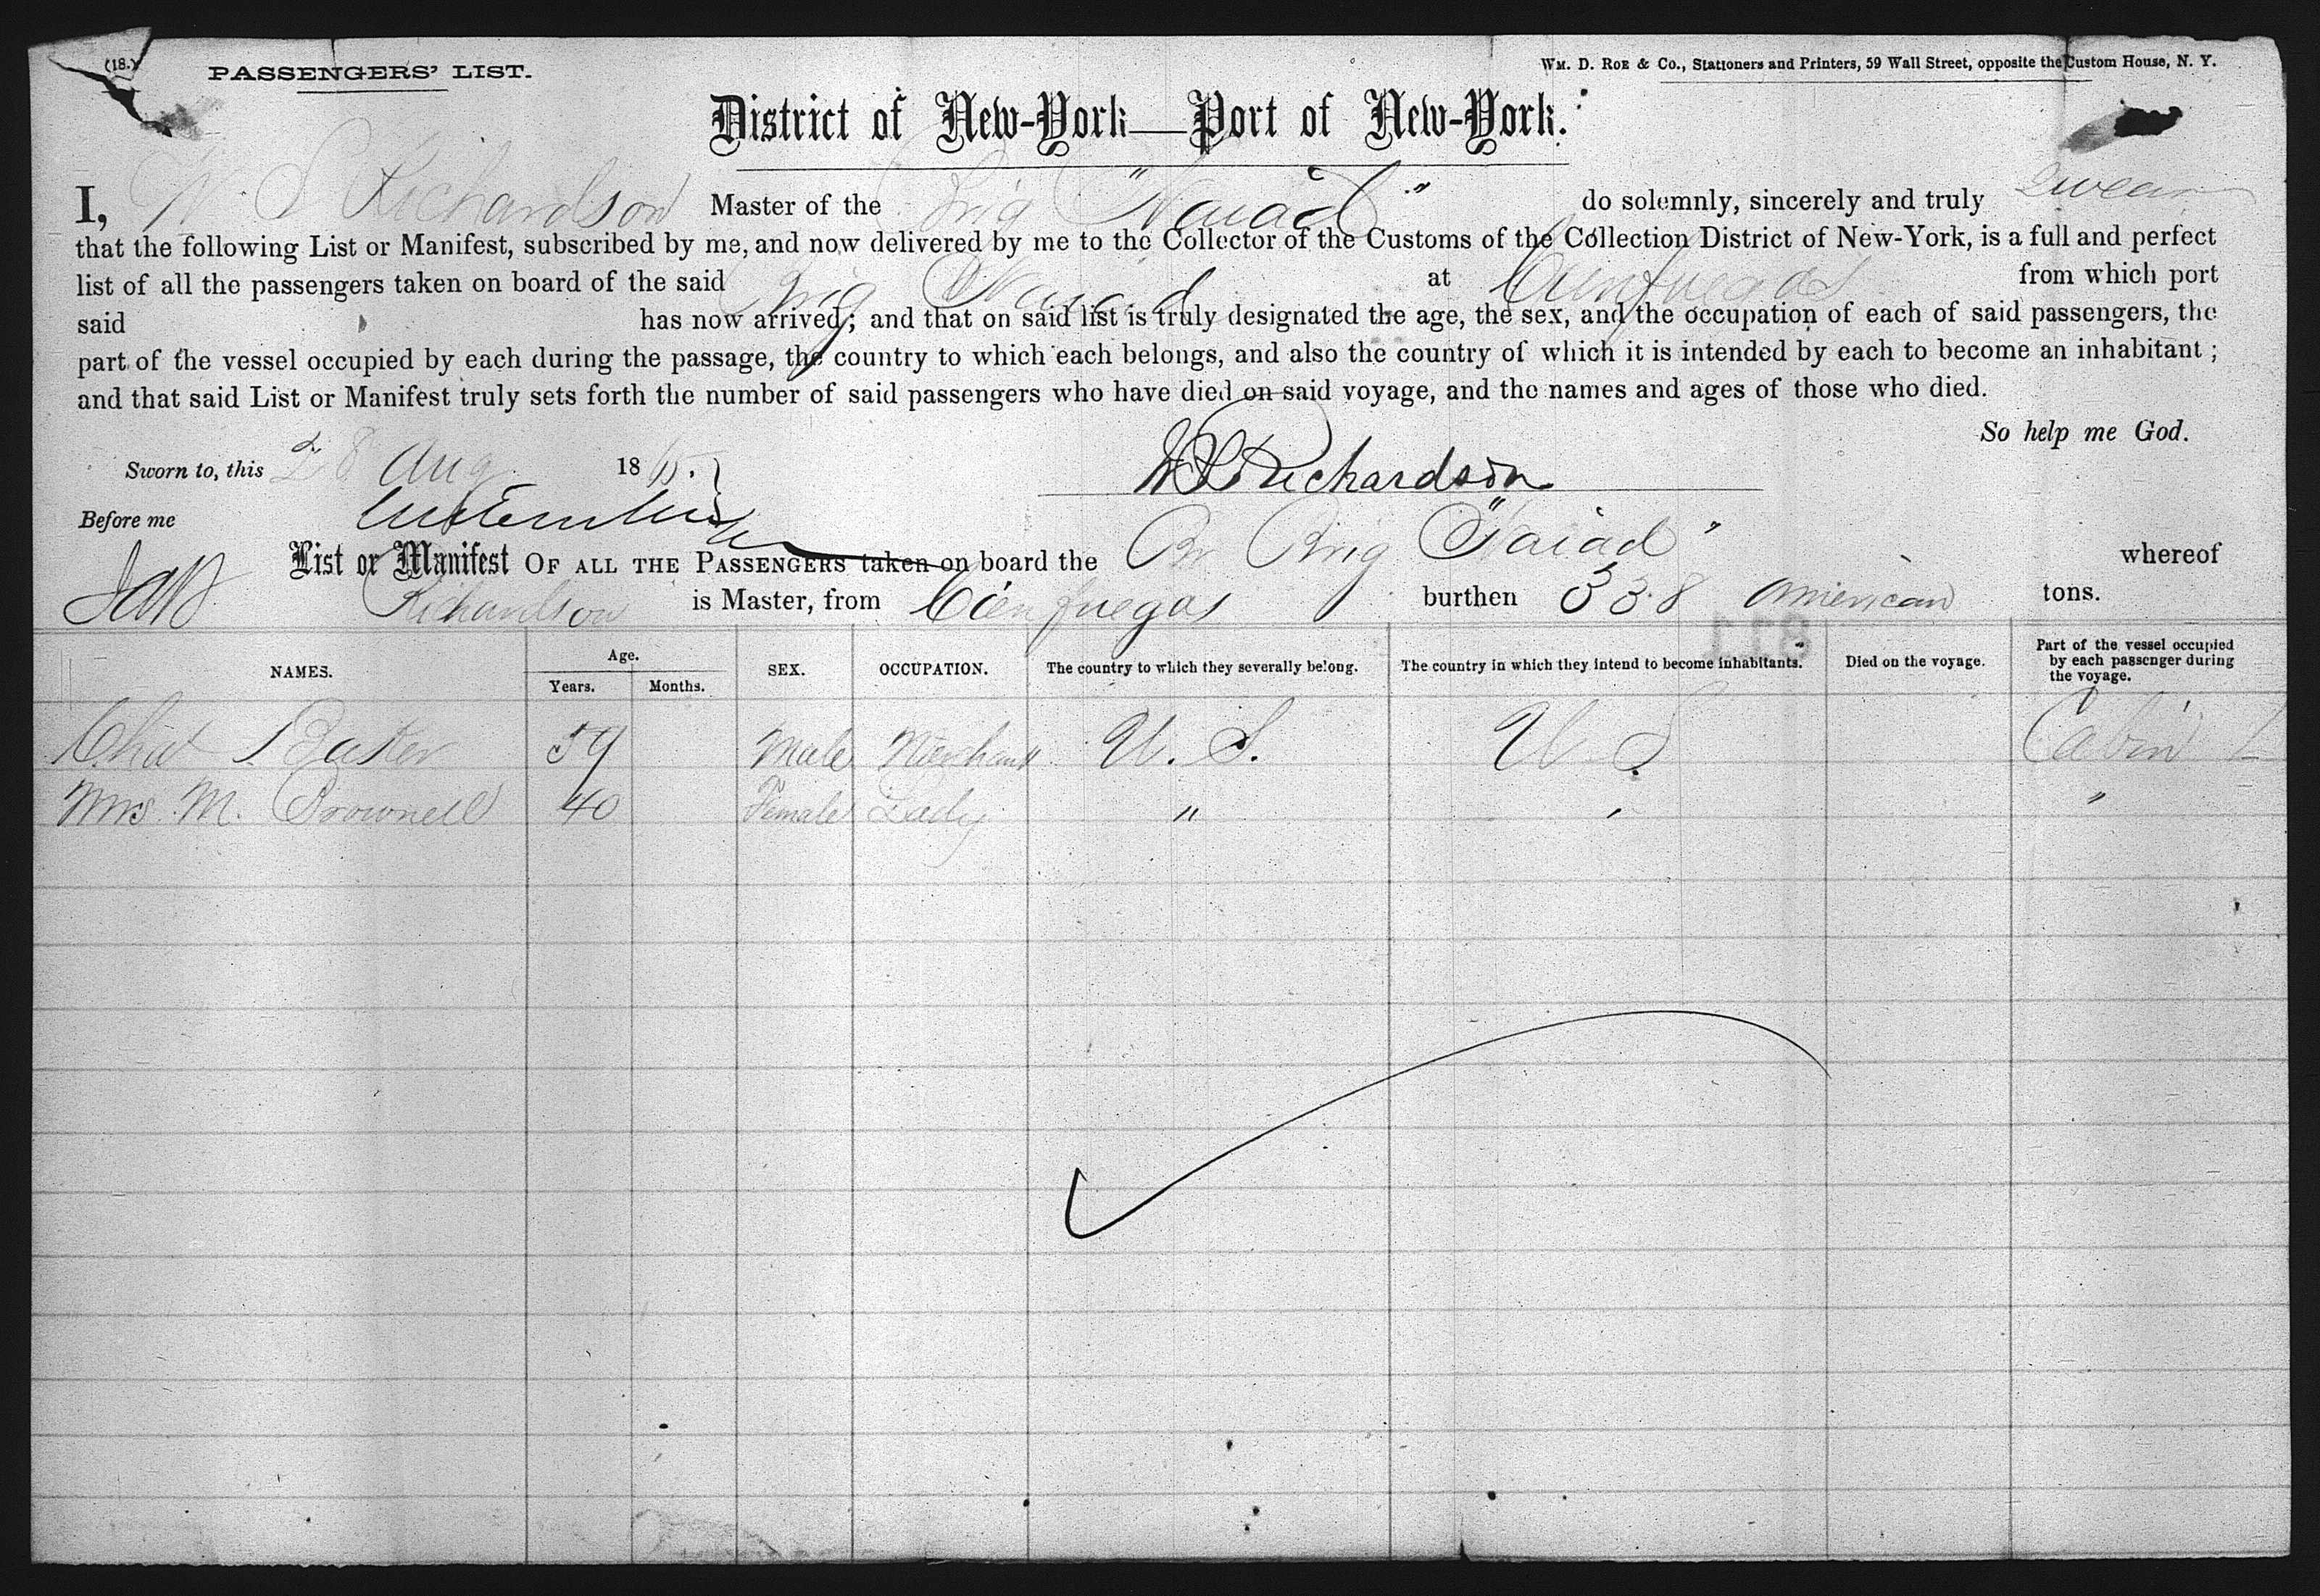 (18.)
PASSENGERS' LIST.
WM. D. ROE & CO., Stationers and Printers, 59 Wall Street, opposite the Custom House, N. Y.
District of New-York—Port of New-York.
I, W. S. Richardson Master of the Brig "Naiad" do solemnly, sincerely and truly swear
that the following List or Manifest, subscribed by me, and now delivered by me to the Collector of the Customs of the Collection District of New-York, is a full and perfect
list of all the passengers taken on board of the said Brig Naiad at Cienfuegos from which port
said has now arrived; and that on said list is truly designated the age, the sex, and the occupation of each of said passengers, the
part of the vessel occupied by each during the passage, the country to which each belongs, and also the country of which it is intended by each to become an inhabitant;
and that said List or Manifest truly sets forth the number of said passengers who have died on said voyage, and the names and ages of those who died.
So help me God.
Sworn to, this 28 Aug 1865.
W S Richardson
Before me
List or Manifest OF ALL THE PASSENGERS taken on board the Br Brig "Naiad" whereof
Richardson is Master, from Cienfuegos burthen 338 American tons.
NAMES. Age. Years. Months. SEX. OCCUPATION. The country to which they severally belong. The country in which they intend to become inhabitants. Died on the voyage. Part of the vessel occupied by each passenger during the voyage.
59 Male Merchant U. S. U S Cabin
Mrs M. Brownell 40 Female Lady " " "